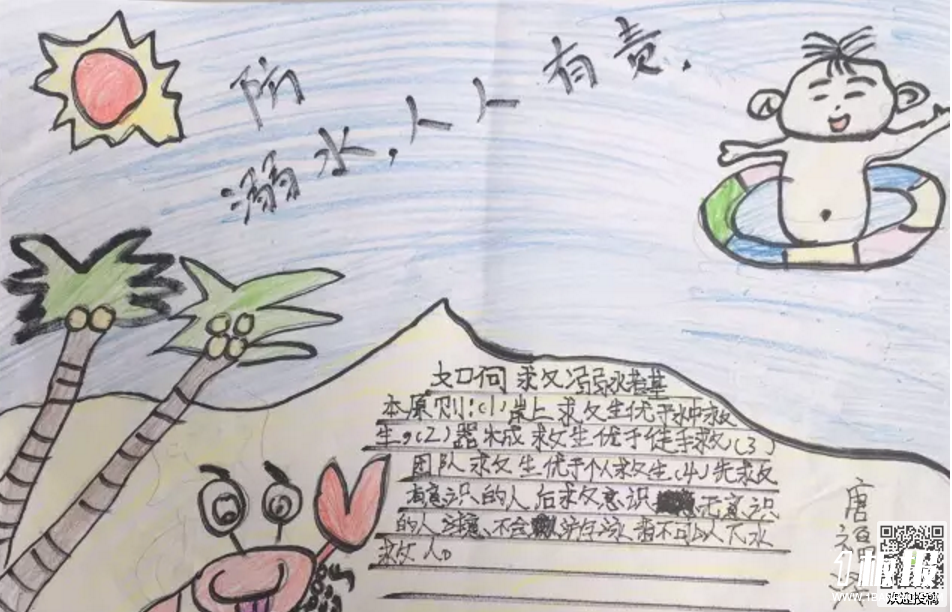 防
溺水,人人有责.
如何求救溺水者基
本原则:(1)岸上求救生优于水中救
生。(2)器械求救生优于徒手救(3)
团队求救生优于个求救生(4)先求救
有意识的人后求救意识无意识
的人注意、不会游泳者不可以下水
求救人。
唐
www.
欢迎投稿